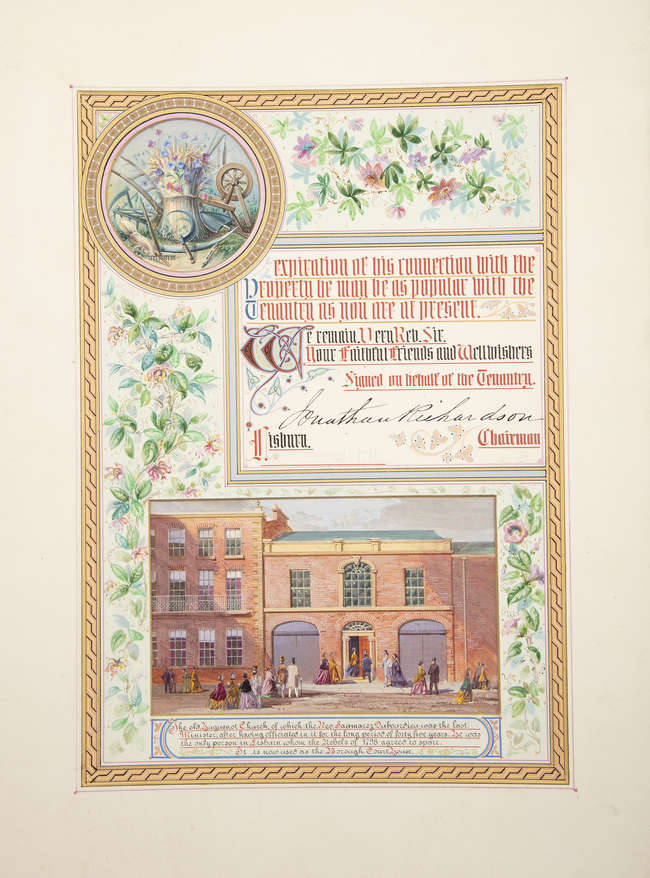 expiration of his connection with the
Property he may be as popular with the
Tenantry as you are at present.
We remain, Very Rev. Sir,
Your Faithful Friends and Wellwishers
Signed on behalf of the Tenantry.
Jonathan Richardson
Lisburn. Chairman
The old Huguenot Church, of which the Rev. Saumarez Dubourdieu was the last
Minister, after having officiated in it for the long period of forty five years. He was
the only person in Lisburn whom the Rebels of 1798 agreed to spare.
It is now used as the Borough Court House.